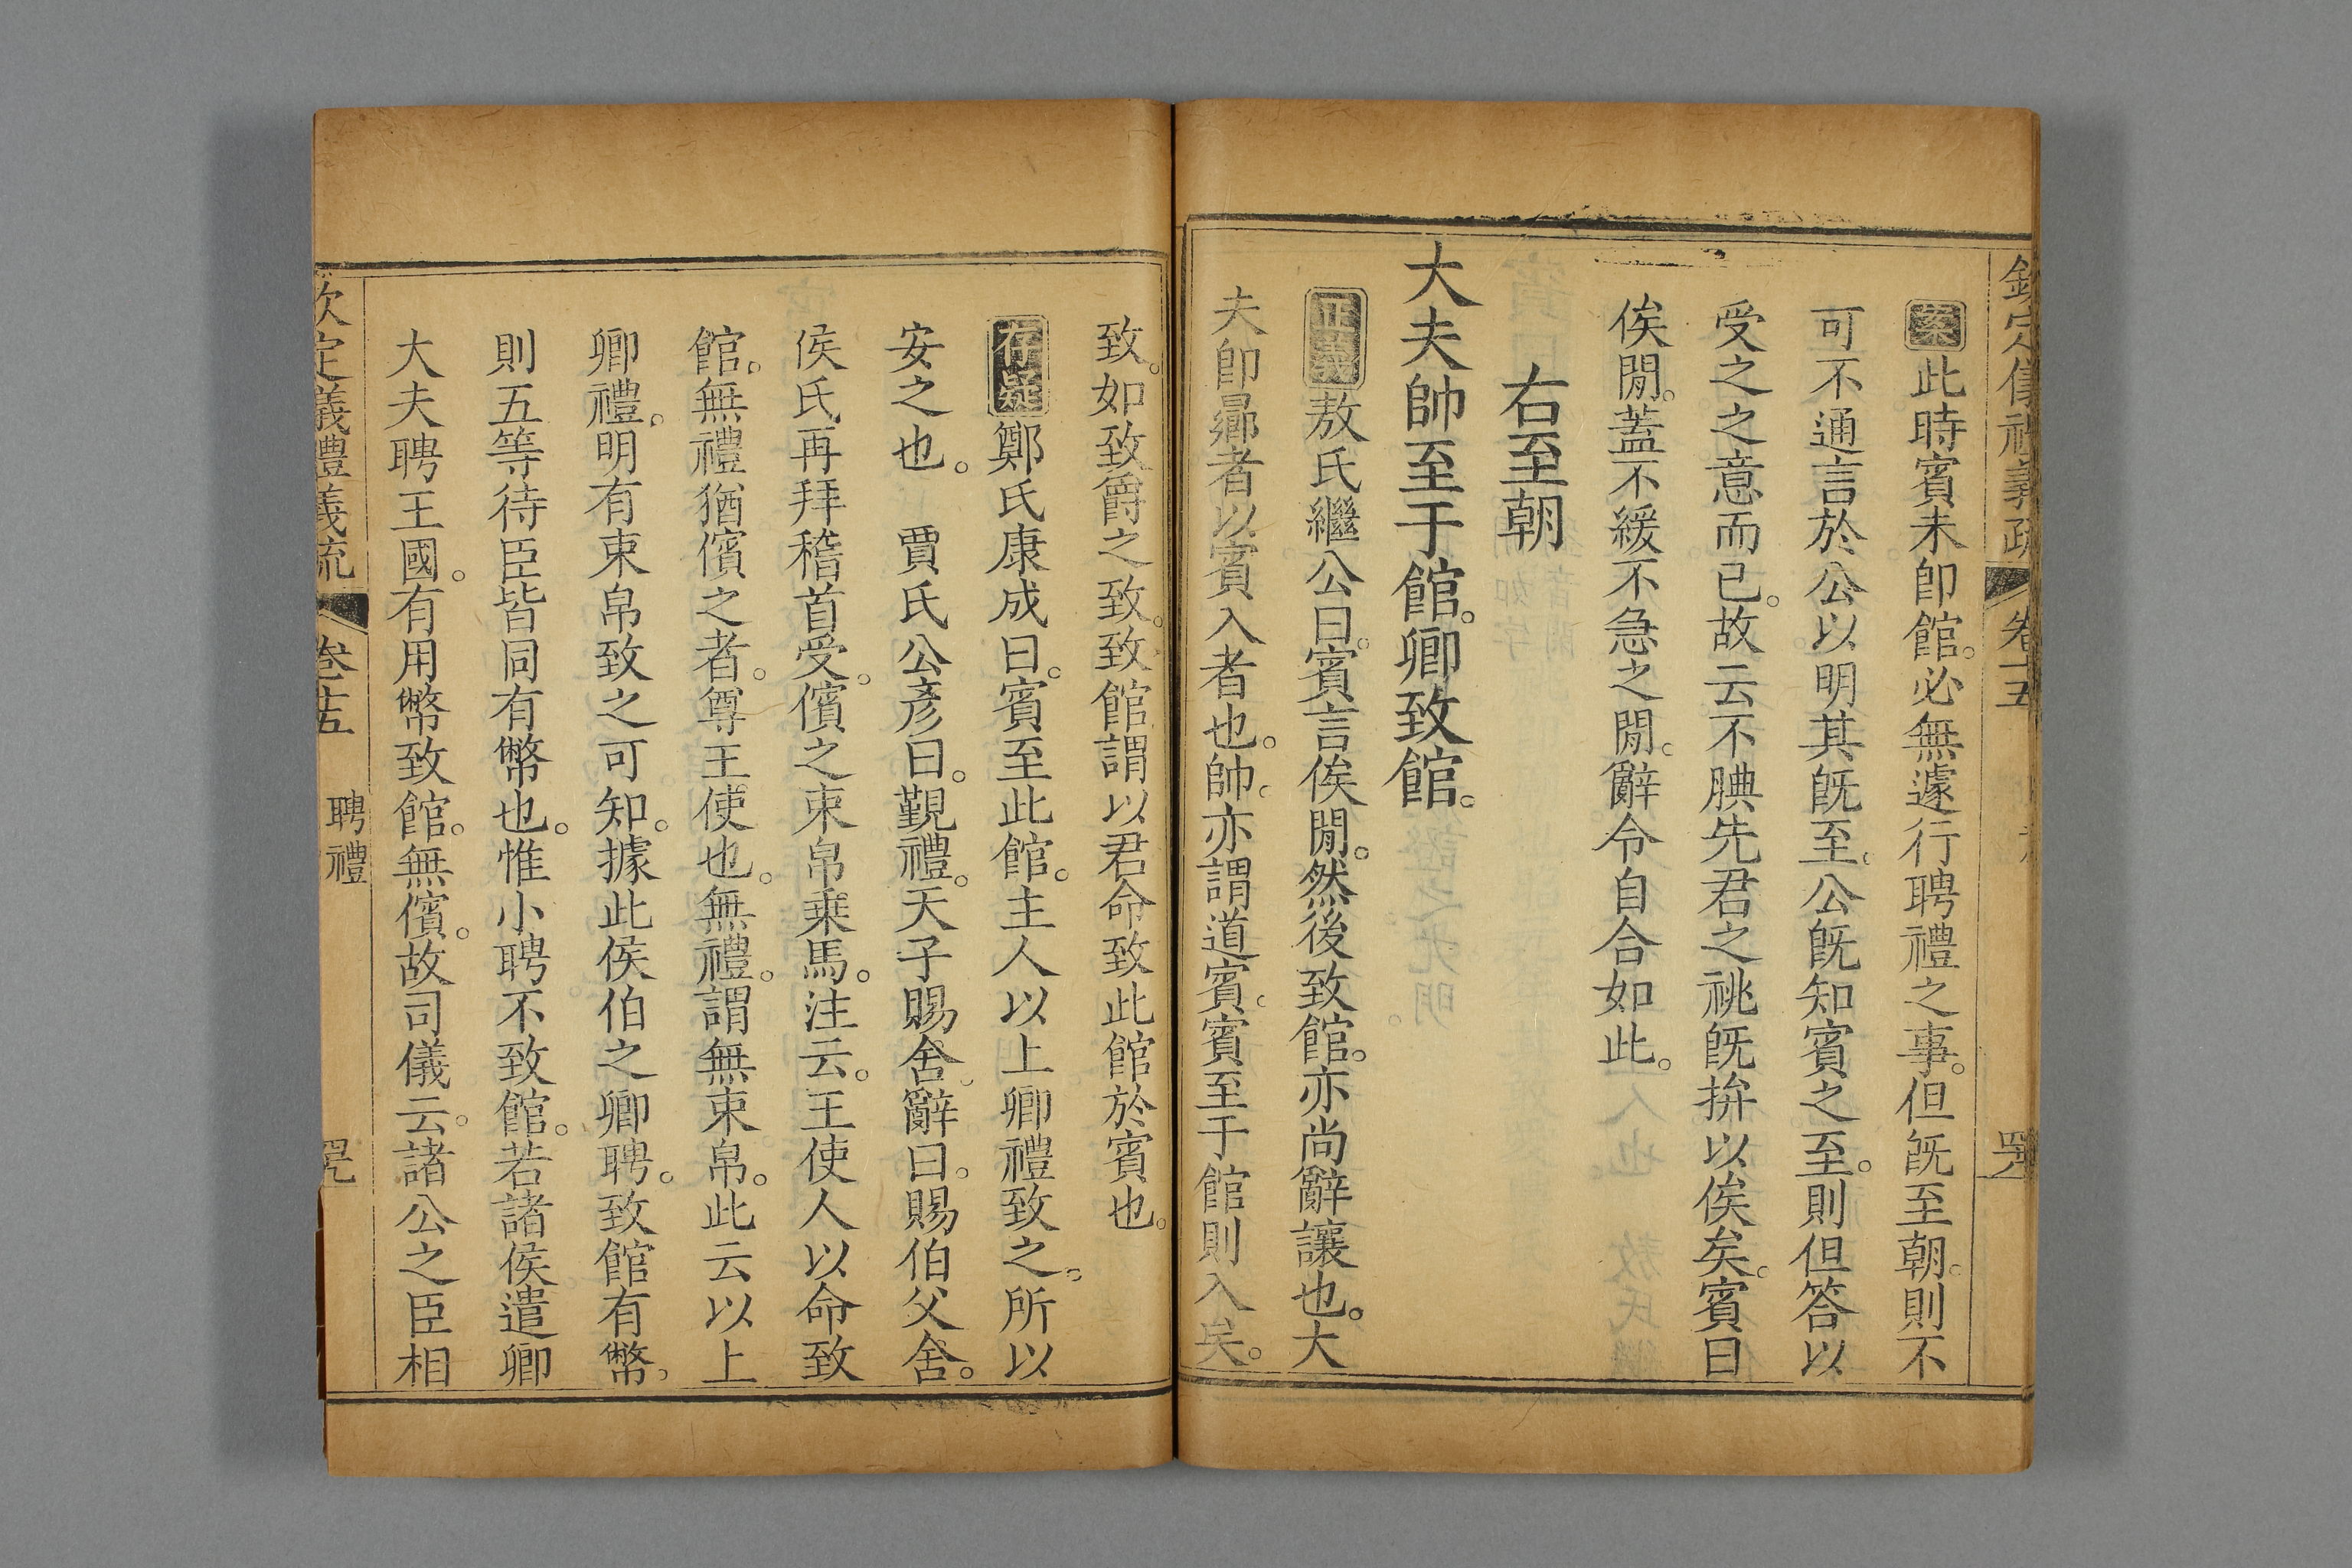 欽定儀禮義疏 卷十五
案此時賓未卽館。必無遽行聘禮之事。但旣至朝。則不
可不通言於公以明其旣至。公旣知賓之至。則但答以
受之之意而已。故云不腆先君之祧旣拚以俟矣。賓曰
俟閒。蓋不緩不急之閒。辭令自合如此。
右至朝
大夫帥至于館。卿致館。
正義敖氏繼公曰。賓言俟閒。然後致館。亦尚辭讓也。大
夫卽曏者以賓入者也。帥。亦謂道賓。賓至于館則入矣。
致。如致爵之致。致館謂以君命致此館於賓也。
存疑鄭氏康成曰。賓至此館。主人以上卿禮致之。所以
安之也。 賈氏公彥曰。覲禮。天子賜舍。辭曰。賜伯父舍。
侯氏再拜稽首受。儐之束帛乗馬。注云。王使人以命致
館。無禮猶儐之者。尊王使也。無禮。謂無束帛。此云以上
卿禮。明有束帛致之可知。據此侯伯之卿聘。致館有幣。
則五等待臣皆同有幣也。惟小聘不致館。若諸侯遣卿
大夫聘王國。有用幣致館。無儐。故司儀云。諸公之臣相
欽定儀禮義疏 卷十五 聘禮